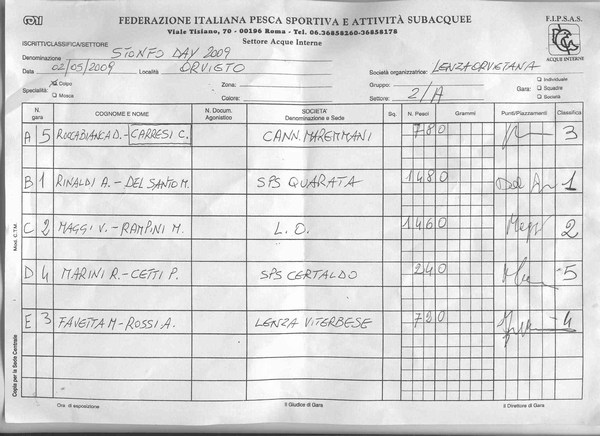 FEDERAZIONE ITALIANA PESCA SPORTIVA E ATTIVITÀ SUBACQUEE
Viale Tiziano, 70 - 00196 Roma - Tel. 06.36858360-36858178
Settore Acque Interne
F.I.P.S.A.S.
ACQUE INTERNE
ISCRITTI/CLASSIFICA/SETTORE
Denominazione STONFO DAY 2009
Data 02/05/2009 Località ORVIETO Società organizzatrice: LENZAORVIETANA
Specialità: Colpo Mosca Zona: Gruppo: Gara: Individuale Squadre Società
Colore: Settore: 2/A
N. gara COGNOME E NOME N. Docum. Agonistico SOCIETA' Denominazione e Sede Sq. N. Pesci Grammi Punti/Piazzamenti Classifica
A 5 ROCCABIANCA D. - CARRESI C. CANN. MAREMMANI 780 3
B 1 RINALDI A. - DEL SANTO M. SPS QUARATA 1480 1
C 2 MAGGI V. - RAMPINI M. L. O. 1460 2
D 4 MARINI R. - CETTI P. SPS CERTALDO 240 5
E 3 FAVETTA M - ROSSI A. LENZA VITERBESE 4
Mod. C.T.M.
Copia per la Sede Centrale
Ora di esposizione Il Giudice di Gara Il Direttore di Gara